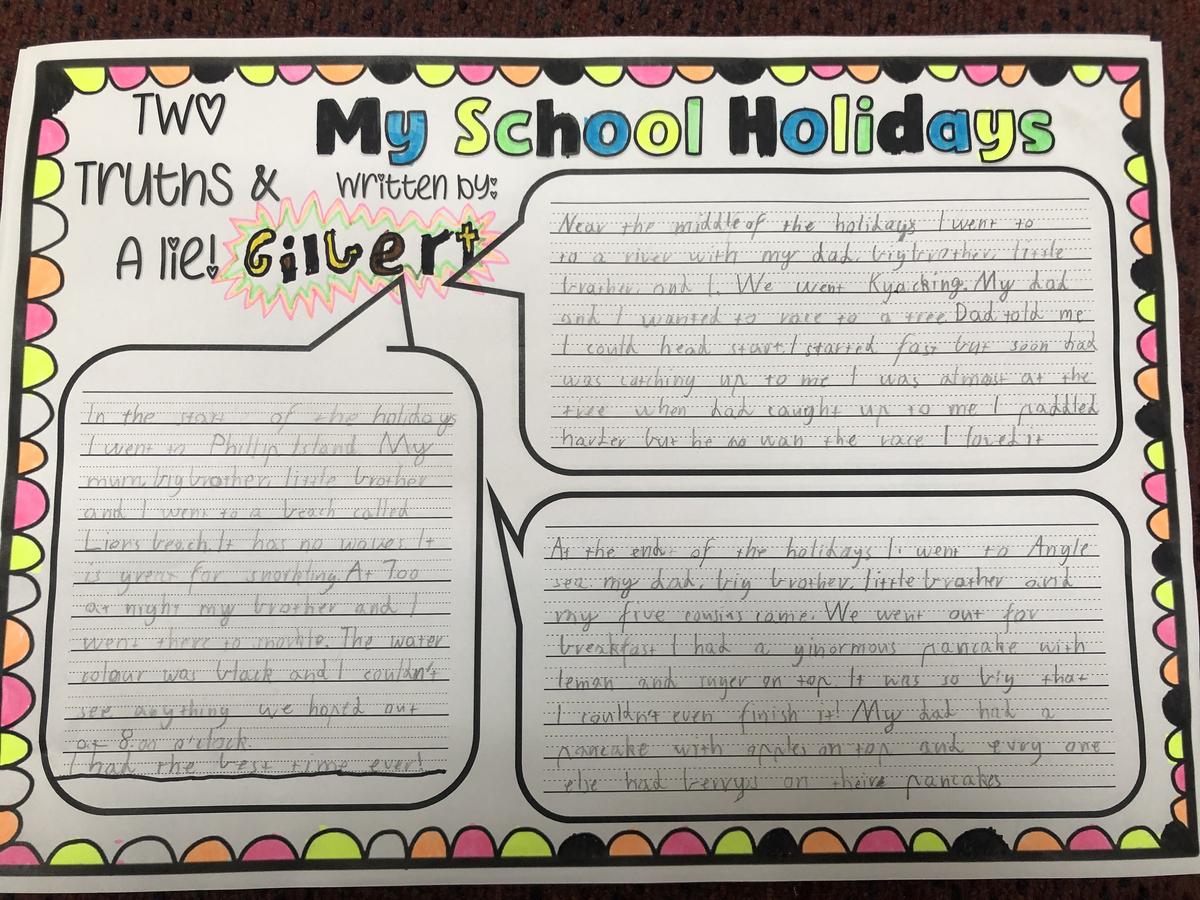 TWO
My School Holidays
Truths &
written by:
A lie!
Gilbert
Near the middle of the holidays I went to
to a river with my dad, big brother, little
brother, and I. We went Kyacking. My dad
and I wanted to race to a tree Dad told me
I could head start. I started fast but soon dad
was catching up to me I was almost at the
tree when dad caught up to me I paddled
harder but he no wan the race I loved it
In the start of the holidays
I went to Phillip Island. My
mum, big brother, little brother
and I went to a beach called
Lions beach. It has no waves It
is great for snorkling. At 7oo
at night my brother and I
went there to snorkle. The water
colour was black and I couldn't
see anything we hopt out
at 8:on o'clock.
I had the best time ever!
At the end of the holidays I went to Angle
sea my dad, big brother, little brother and
my five cousins came. We went out for
breakfast I had a ginormous pancake with
lemon and suger on top. It was so big that
I couldn't even finish it! My dad had a
pancake with apples on top and every one
else had berrys on theire pancakes